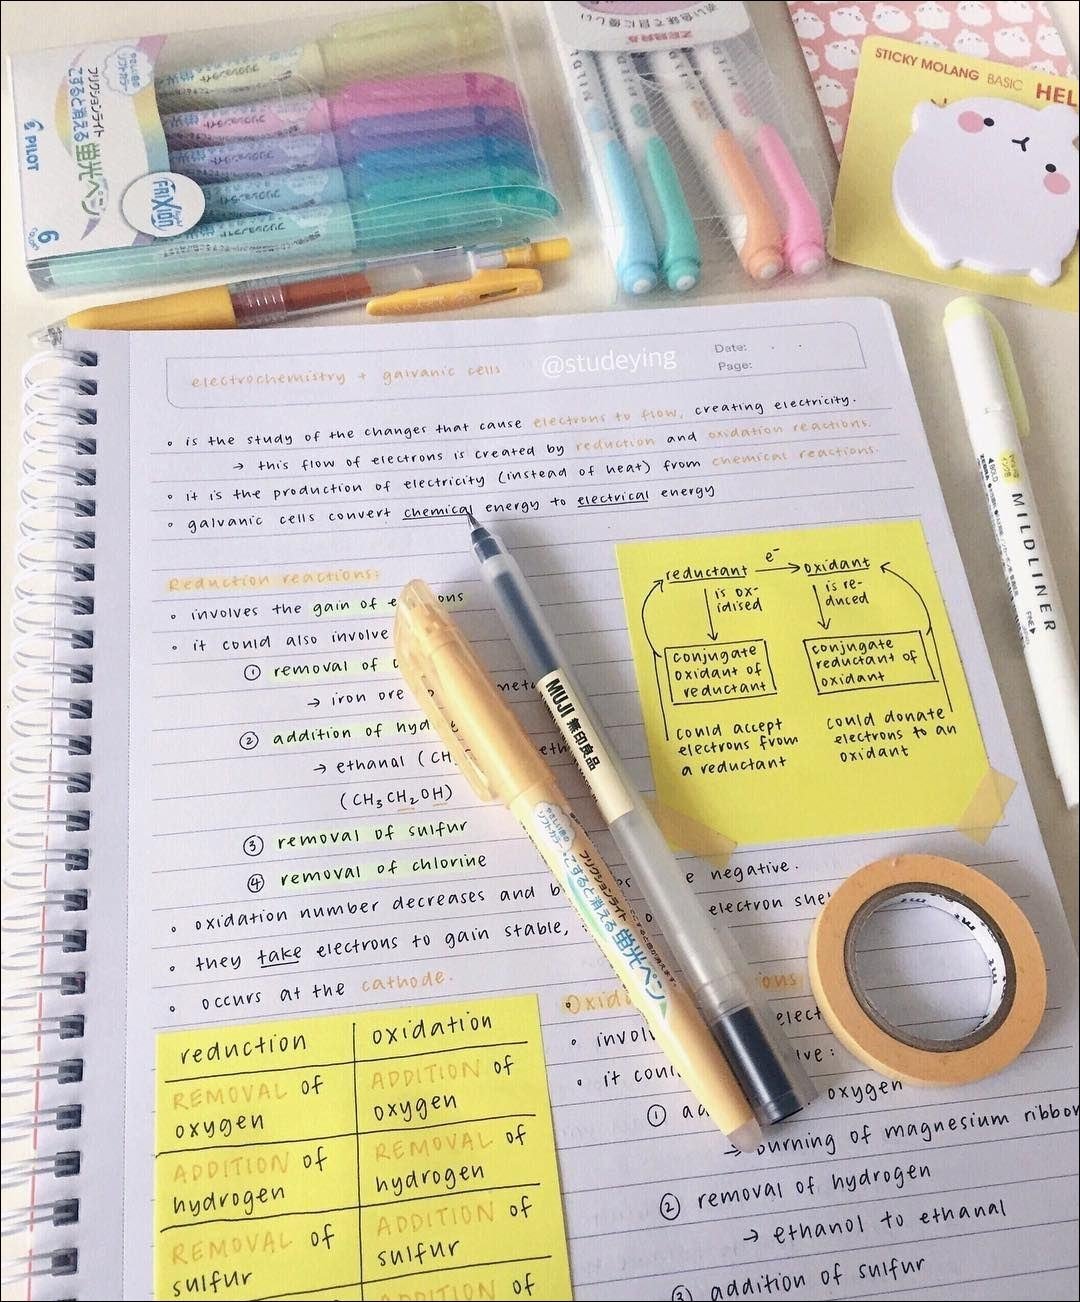 フリクションライト
こすると消える
蛍光ペン
PILOT
FRIXION
6
STICKY MOLANG BASIC HEL
ZEBRA
MILDLINER
electrochemistry + galvanic cells
@studeying
Date: . .
Page:
◦ is the study of the changes that cause electrons to flow, creating electricity.
→ this flow of electrons is created by reduction and oxidation reactions.
◦ it is the production of electricity (instead of heat) from chemical reactions.
◦ galvanic cells convert chemical energy to electrical energy
Reduction reactions:
◦ involves the gain of e ons
◦ it could also involve
① removal of
→ iron ore
② addition of hyd
→ ethanal (CH
(CH₃CH₂OH)
③ removal of sulfur
④ removal of chlorine
◦ oxidation number decreases and b e negative.
◦ they take electrons to gain stable, electron she
◦ occurs at the cathode.
reductant e⁻ → oxidant
is ox-
idised
is re-
duced
conjugate
oxidant of
reductant
conjugate
reductant of
oxidant
could accept
electrons from
a reductant
could donate
electrons to an
oxidant
MUJI 無印良品
フリクションライト
こすると消える蛍光ペン
reduction oxidation
REMOVAL of
oxygen
ADDITION of
oxygen
ADDITION of
hydrogen
REMOVAL of
hydrogen
REMOVAL of
sulfur
ADDITION of
sulfur
ADDITION of
◦ Oxid ons
◦ invol elect
◦ it coul ve:
① ad oxygen
→ burning of magnesium ribbon
② removal of hydrogen
→ ethanol to ethanal
③ addition of sulfur
mt